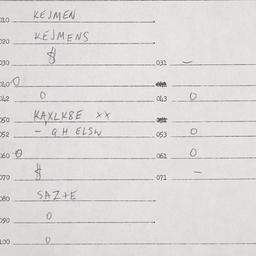 010 KEJMEN
020 KEJMENS
030 $ 031 –
040 0
042 0 043 0
050 KAXLK8E xx
052 – GH ELSW 053 0
060 0 061 0
070 $ 071 –
080 SAZ+E
090 0
100 0